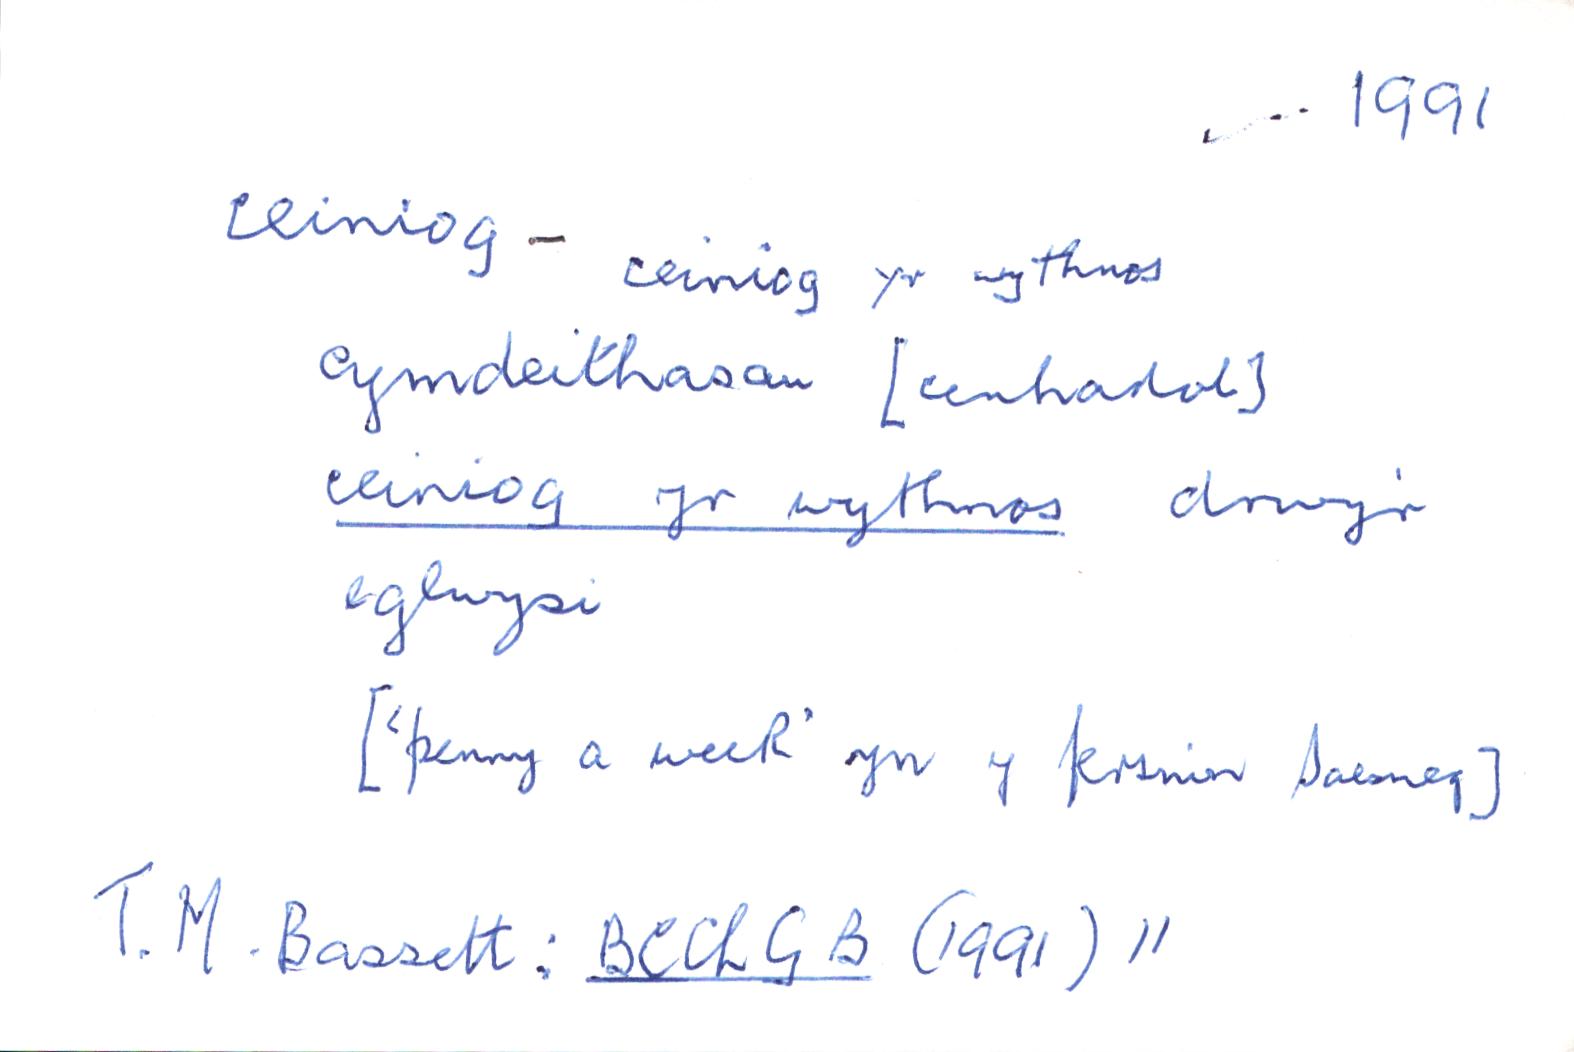 1991
ceiniog - ceiniog yr wythnos
cymdeithasau [cenhadol]
ceiniog yr wythnos drwy'r
eglwysi
['penny a week' yn y fersiwn Saesneg]
T. M. Bassett: BCChGB (1991) 11